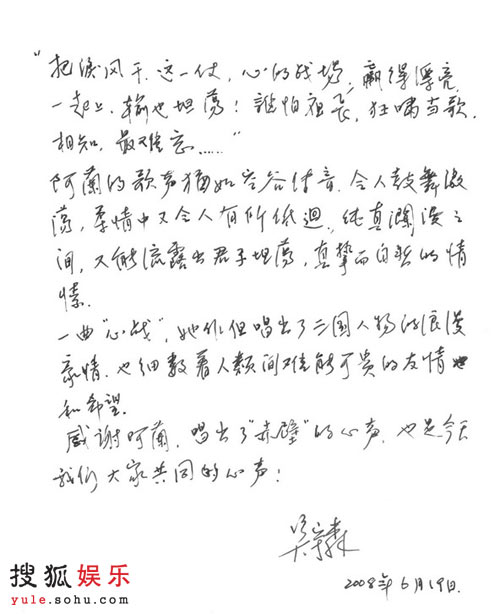 "把泪风干.这一仗，心的战场，赢得漂亮.
一起上.输也坦荡！谁怕夜长，狂啸当歌.
相知，最难忘……"
阿蘭的歌声猶如空谷传音.令人鼓舞激
荡，柔情中又令人有所低迴.纯真瀾漫之
间，又能流露出君子坦荡，真挚而自然的情
愫.
一曲"心战"，她不但唱出了三国人物的浪漫
豪情.也细数着人類间难能可贵的友情
和希望.
感謝阿蘭.唱出了"赤壁"的心声.也是今天
我们大家共同的心声！
2008年6月19日.
搜狐娱乐
yule.sohu.com